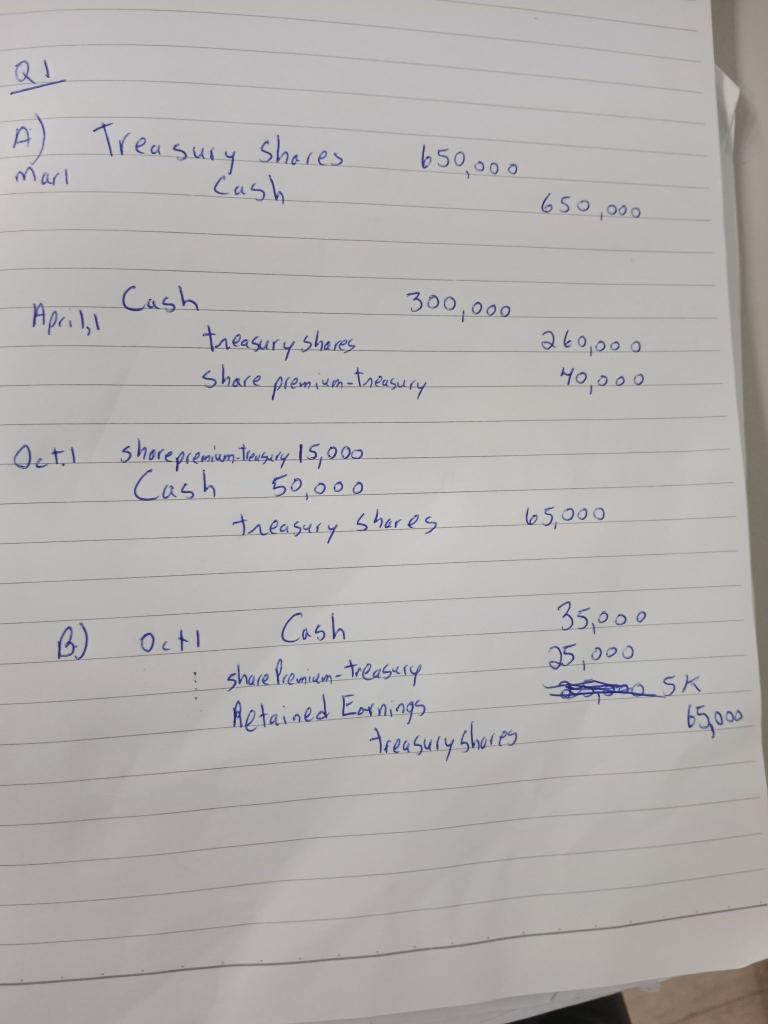 Q1
A) Treasury Shares 650,000
Mar1 Cash 650,000
April,1 Cash 300,000
treasury shares 260,000
share premium-treasury 40,000
Oct.1 share premium-treasury 15,000
Cash 50,000
treasury shares 65,000
B.) Oct1 Cash 35,000
share Premium-treasury 25,000
Retained Earnings 5K
treasury shares 65,000